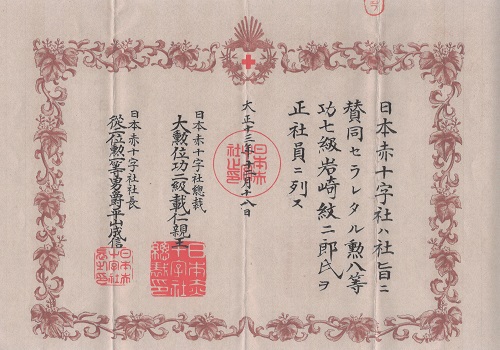 日本赤十字社ハ社旨ニ
賛同セラレタル勲八等
功七級岩崎紋二郎氏ヲ
正社員ニ列ス
大正十三年十二月十八日
日本赤十字社總裁
大勲位功一級載仁親王
日本赤十字社社長
從二位勲一等男爵平山成信
日本赤
十字社
總裁印